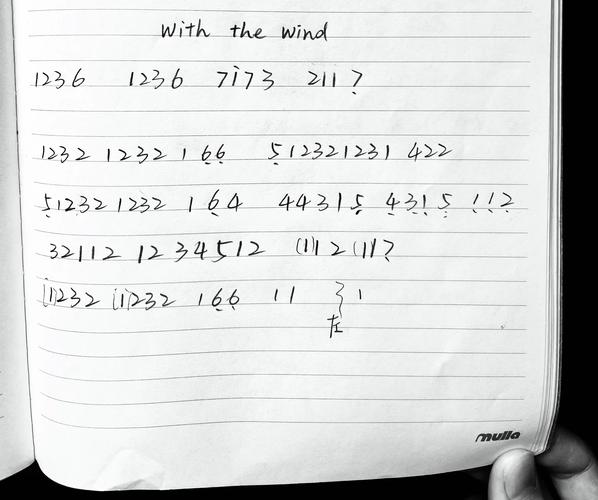 With the wind
1236 1236 7i73 211?
1232 1232 1 66 512321231 422
51232 1232 1 64 44315 4315 112
32112 12 34512 (1)12(1)?
(1)1232 (1)1232 166 11 } 1
左
mulla